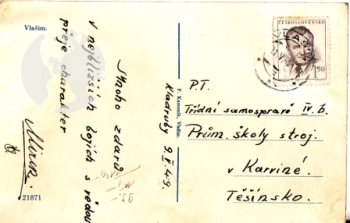 Vlašim.
Mnoho zdaru
v nejbližších bojích s vědou
přeje charakter
Mirek.
21871
Kladruby 9.X.49.
ČESKOSLOVENSKO
1 50
P.T.
Třídní samospráva IV.b.
Prům. školy stroj.
v Karviné
Těšínsko.